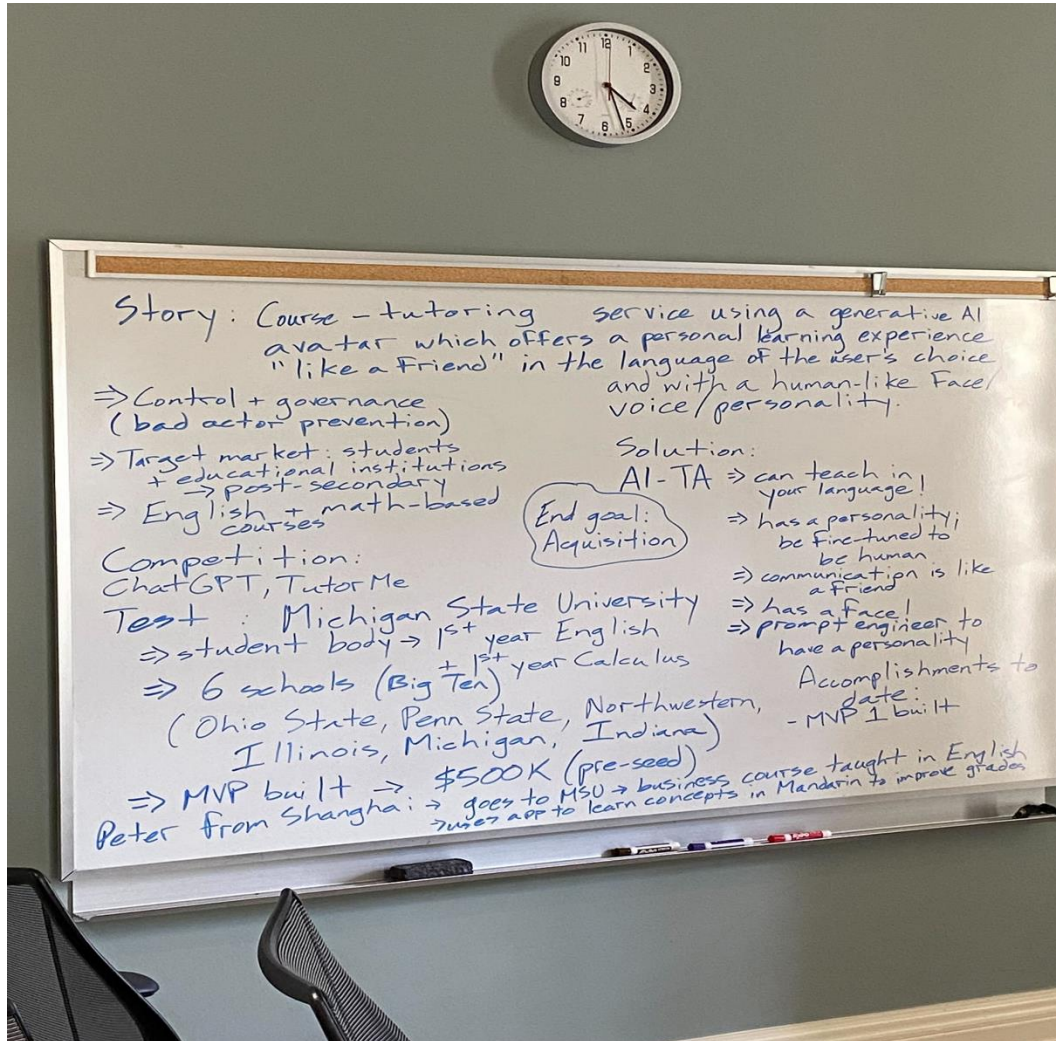 11 12 1
10 2
9 3
8 4
7 6 5
Story: Course-tutoring service using a generative AI
avatar which offers a personal learning experience
"like a friend" in the language of the user's choice
and with a human-like Face/
voice/personality.
⇒ Control + governance
(bad actor prevention)
⇒ Target market: students
+ educational institutions
→ post-secondary
⇒ English + math-based
courses
Competition:
ChatGPT, TutorMe
End goal:
Acquisition
Solution:
AI-TA ⇒ can teach in
your language!
⇒ has a personality;
be fine-tuned to
be human
⇒ communication is like
a friend
⇒ has a face!
⇒ prompt engineer to
have a personality
Test: Michigan State University
⇒ student body → 1st year English
+ 1st year Calculus
⇒ 6 schools (Big Ten)
(Ohio State, Penn State, Northwestern,
Illinois, Michigan, Indiana)
Accomplishments to
date:
- MVP 1 built
⇒ MVP built → $500K (pre-seed)
Peter from Shanghai → goes to MSU → business course taught in English
→ uses app to learn concepts in Mandarin to improve grades